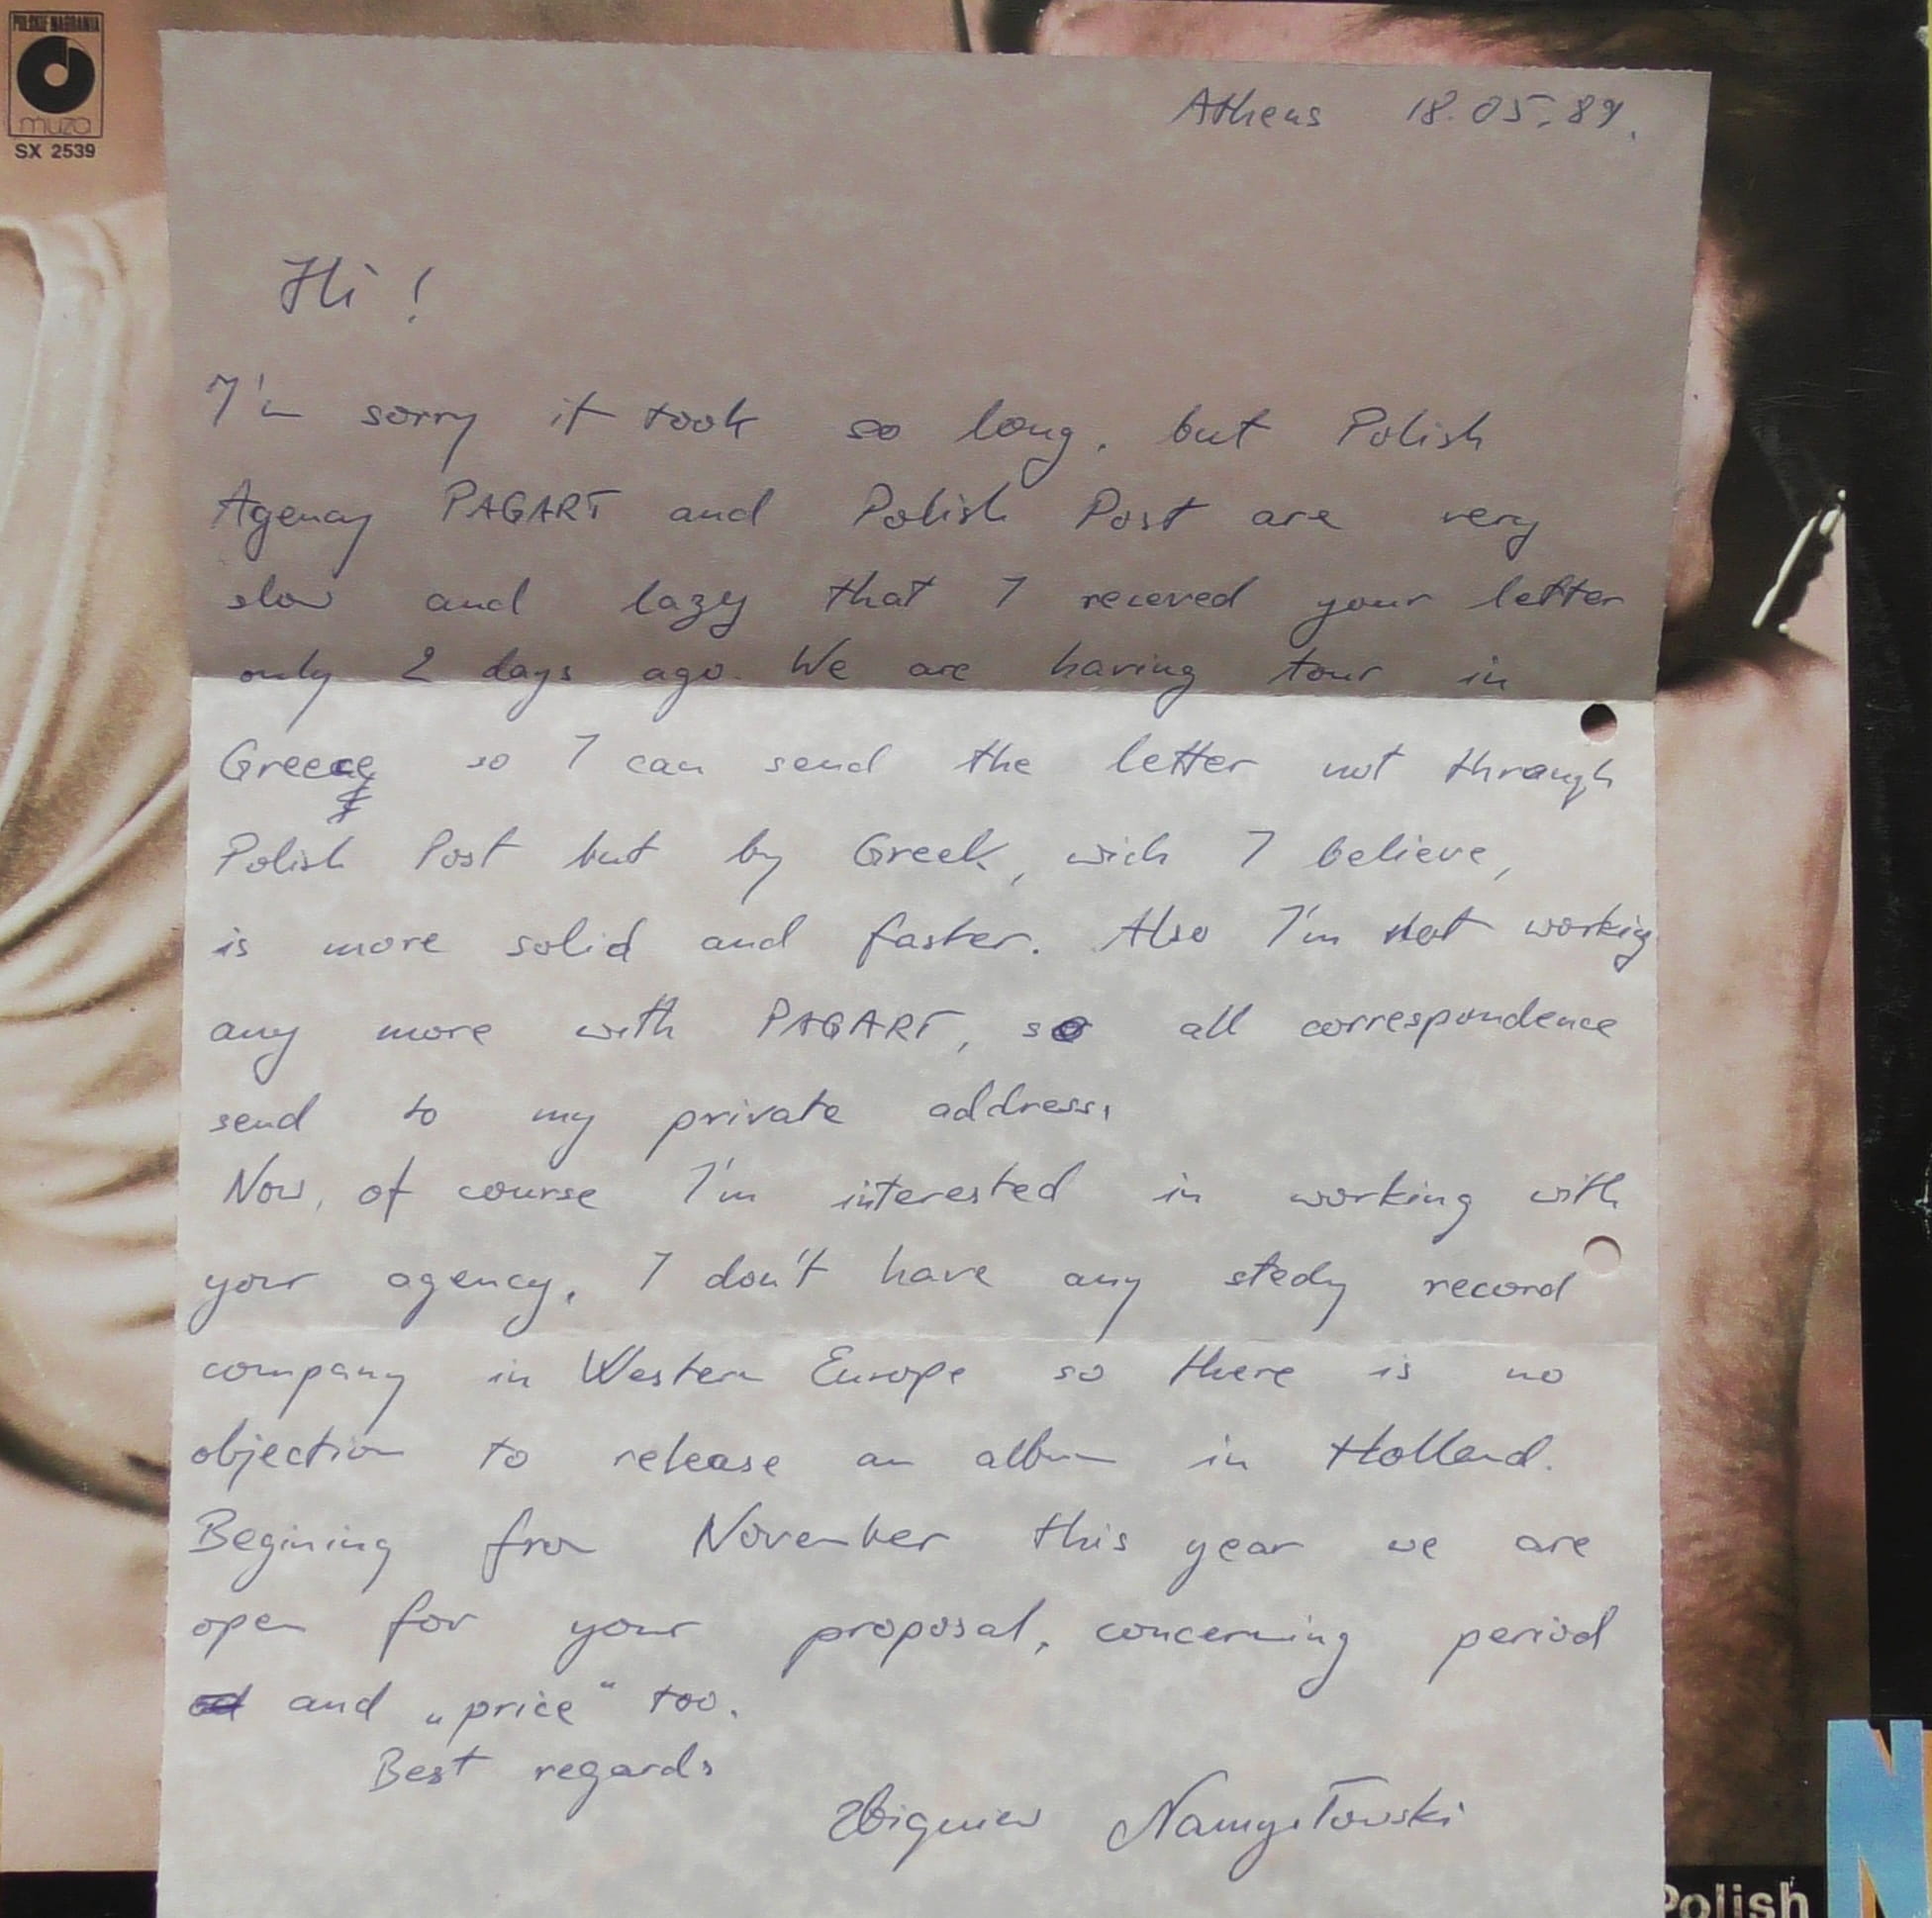 POLSKIE NAGRANIA
muza
SX 2539
Athens 18.05.89.
Hi !
I'm sorry it took so long, but Polish
Agency PAGART and Polish Post are very
slow and lazy that I receved your letter
only 2 days ago. We are having tour in
Greece so I can send the letter not through
Polish Post but by Greek, wich I believe,
is more solid and faster. Also I'm not workig
any more with PAGART, so all correspondence
send to my private address.
Now, of course I'm interested in working with
your agency. I don't have any stedy record
company in Western Europe so there is no
objection to release an album in Holland.
Begining from November this year we are
open for your proposal, concerning period
and „price" too.
Best regards
Zbigniew Namysłowski
Polish